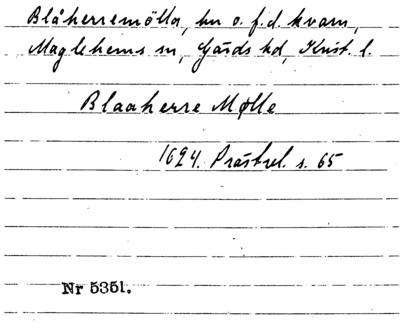 Blåherremölla, hn o. f.d. kvarn,
Maglehems sn, Gärds hd, Krist. l.
Blaaherre Mølle
1624. Prästrel. s. 65
Nr 5351.